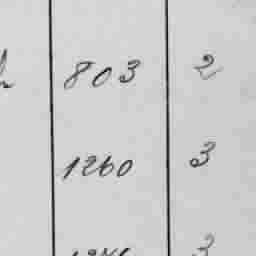 803 2
1260 3
3